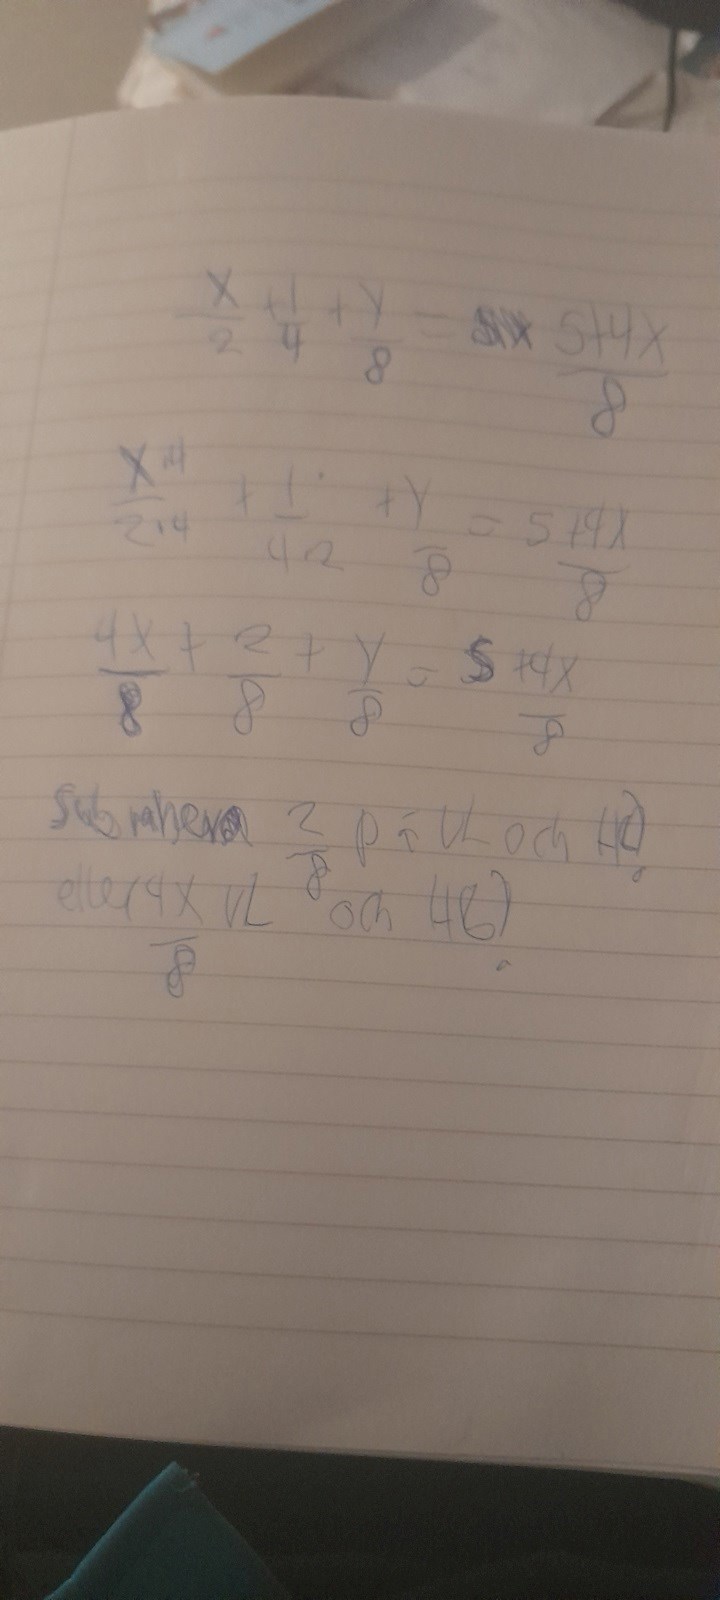 x/2 + 1/4 + y/8 = (5+4x)/8
x·4/2·4 + 1/4·2 + y/8 = (5+4x)/8
4x/8 + 2/8 + y/8 = (5+4x)/8
2/8 på VL och HL
eller 4x/8 VL och HL